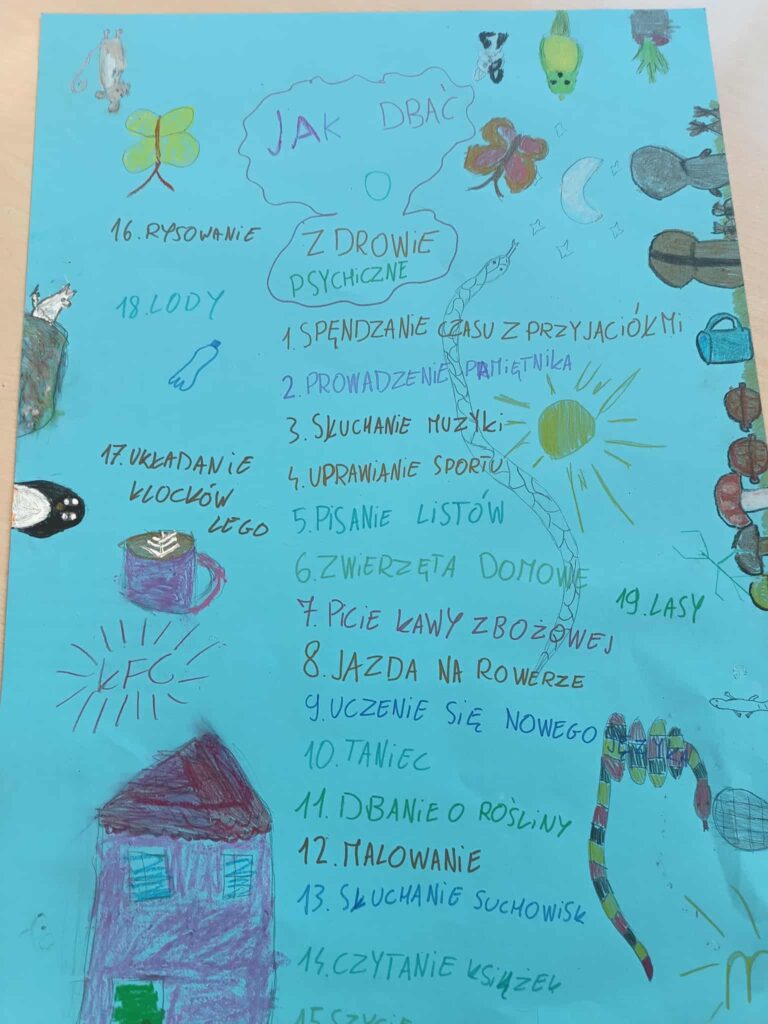 JAK DBAĆ
O
ZDROWIE
PSYCHICZNE
16. RYSOWANIE
18. LODY
1. SPĘNDZANIE CZASU Z PRZYJACIÓŁMI
2. PROWADZENIE PAMIĘTNIKA
3. SŁUCHANIE MUZYKI
4. UPRAWIANIE SPORTU
17. UKŁADANIE
KLOCKÓW
LEGO
5. PISANIE LISTÓW
6. ZWIERZĘTA DOMOWE
19. LASY
7. PICIE KAWY ZBOŻOWEJ
8. JAZDA NA ROWERZE
KFC
9. UCZENIE SIĘ NOWEGO
10. TANIEC
11. DBANIE O ROŚLINY
12. MALOWANIE
13. SŁUCHANIE SUCHOWISK
14. CZYTANIE KSIĄŻEK
M
15. SZYCIE